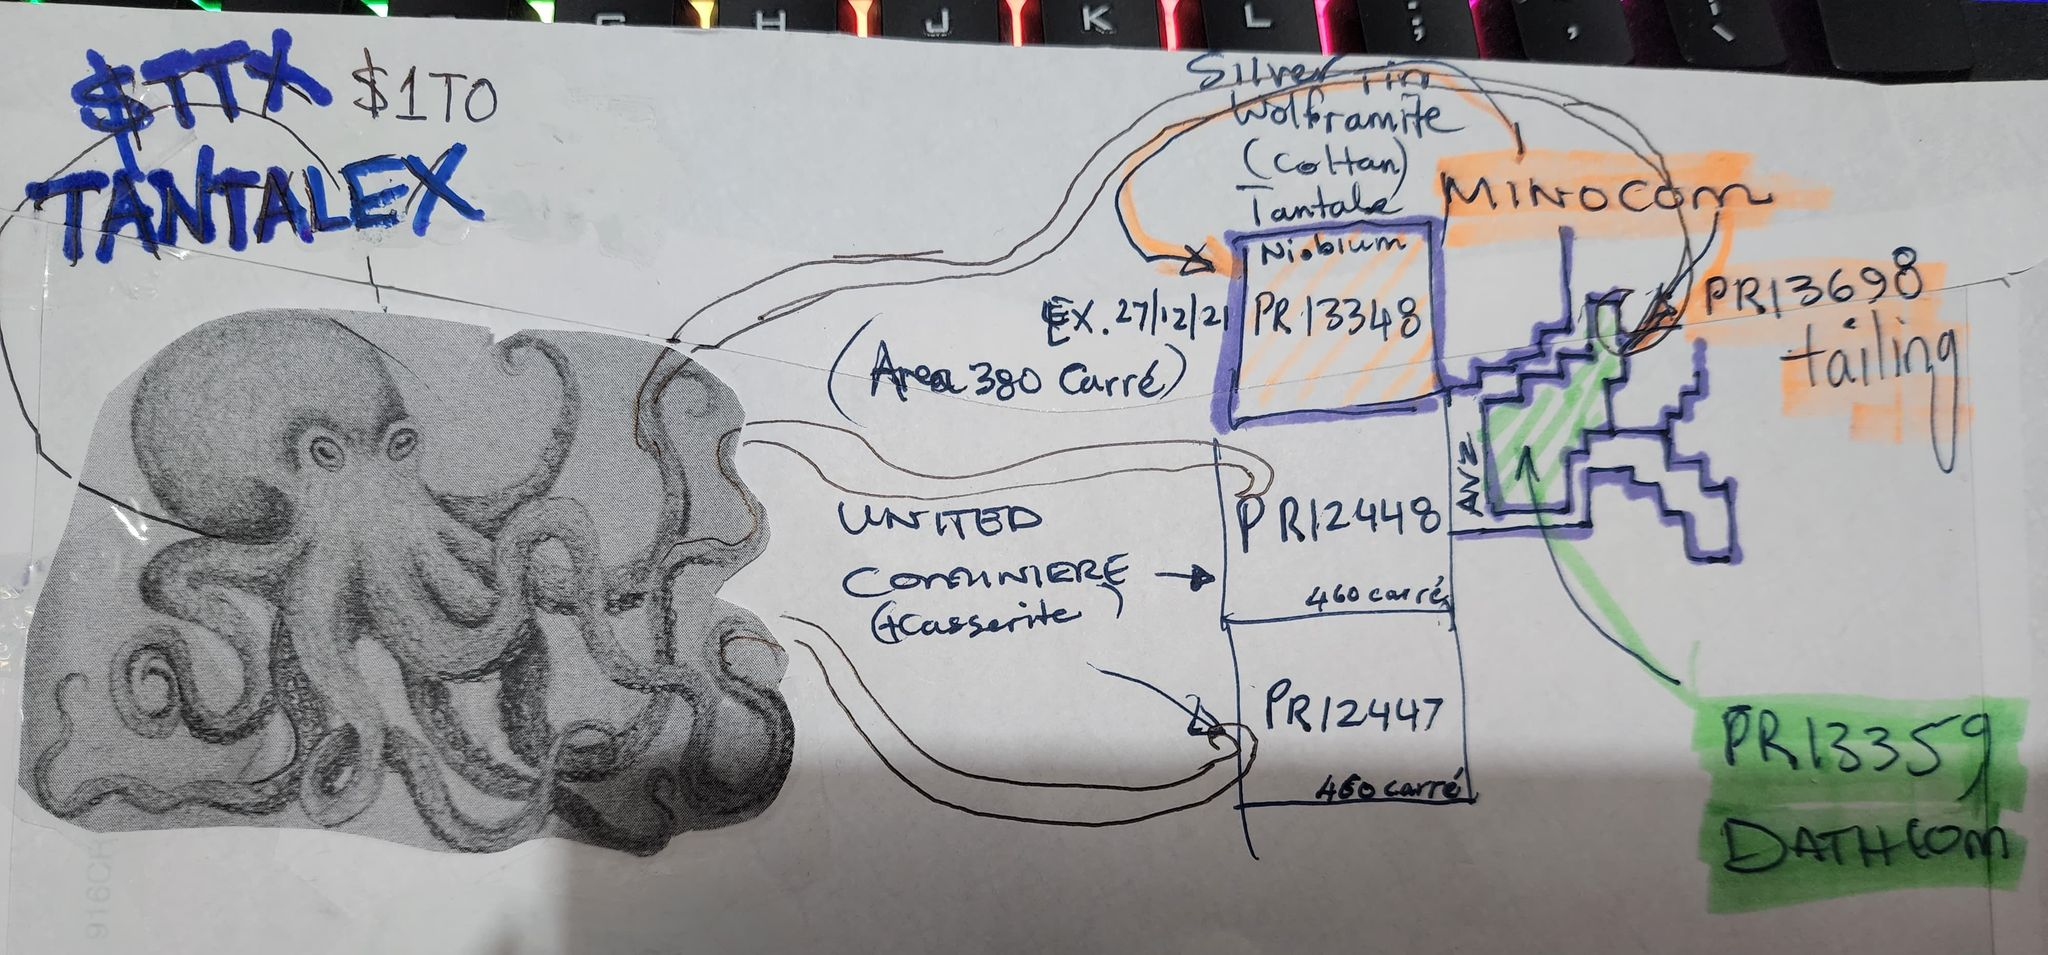 G H J K L ; ' \
$TTX $1TO
TANTALEX
Silver Tin
Wolframite
(Coltan)
Tantale
Niobium
MINOCOM
EX. 27/12/21
PR13348
(Area 380 Carré)
PR13698
tailing
AVZ
UNITED
COMINIERE
(+Casserite)
PR12448
460 carré
PR12447
460 carré
PR13359
DATHCOM